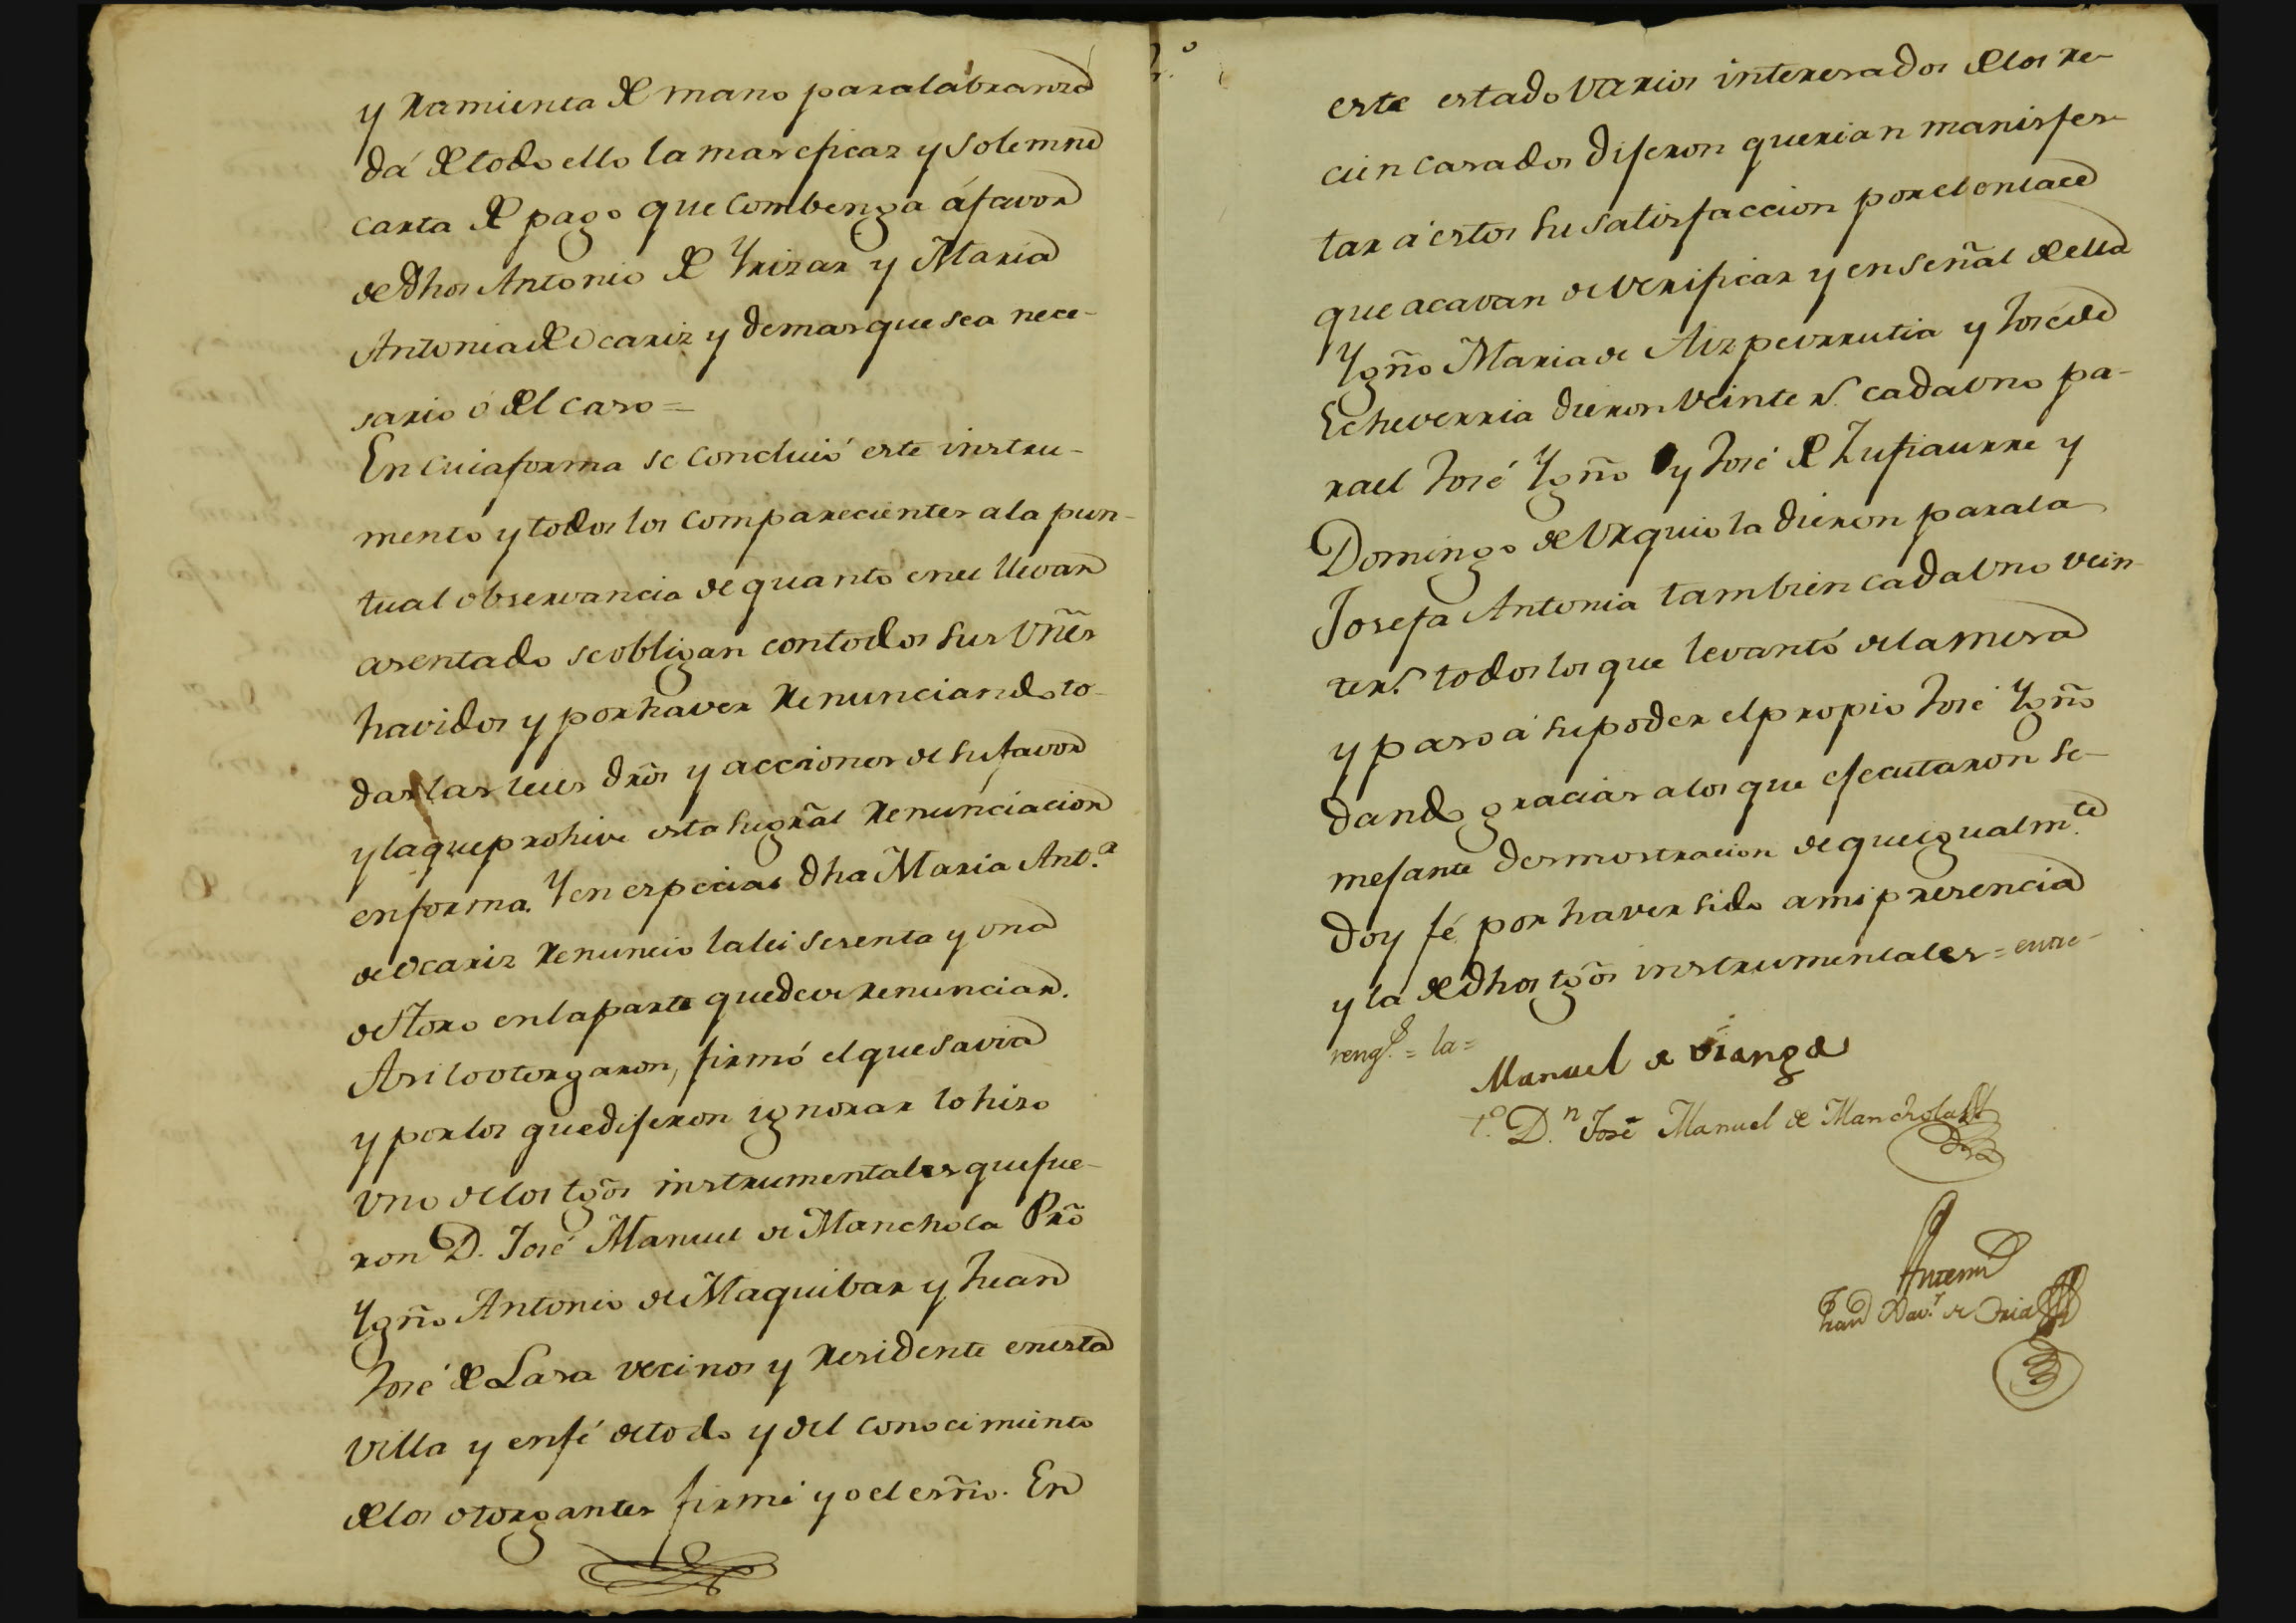 y Ramienta de mano para labranza
dá de todo ello la mas eficaz y Solemne
carta de pago que Combenga á favor
de dhos Antonio de Yrizar y Maria
Antonia de Ocariz y demas que sea nece-
sario ó del caso =
En cuia forma se concluió este instru-
mento y todos los comparecientes a la pun-
tual observancia de quanto en el llevan
asentado se obligan con todos sus vñes
havidos y por haver Renunciando to-
das las leies drõs y acciones de su favor
y la que prohive esta su grãl Renunciacion
en forma. Y en especial dha Maria Ant.ª
de Ocariz Renuncio la lei sesenta y una
de Toro en la parte que deve Renunciar.
Asi lo otorgaron, firmó el que savia
y por los que dijeron ignorar lo hizo
uno de los tgõs instrumentales que fue-
ron D. José Manuel de Manchola Prõ
Ygñõ Antonio de Maquibar y Juan
José de Lasa vecinos y Residente en esta
villa y en fé de todo y del conocimiento
de los otorgantes firmé yo el esñõ. En
este estado varios interesados de los re-
cien casados dijeron querian manisfes-
tar á estos su satisfaccion por el enlace
que acavan de verificar y en señal de ella
Ygñõ Maria de Aizpeurrutia y José de
Echeverria dieron veinte r.s cada uno pa-
ra el José Ygñõ y José de Zufiaurre y
Domingo de Urquiola dieron para la
Josefa Antonia tambien cada uno vein-
te r.s todos los que levantó de la mesa
y paso á su poder el propio José Ygñõ
dando gracias a los que ejecutaron se-
mejante desmostracion de que igualm.te
doy fé por haver sido a mi presencia
y la de dhos tgõs instrumentales = entre-
rengl.s = la =
Manuel de
t.º D.n José Manuel de Manchola
Antemi
Juan Xav.r de Oria